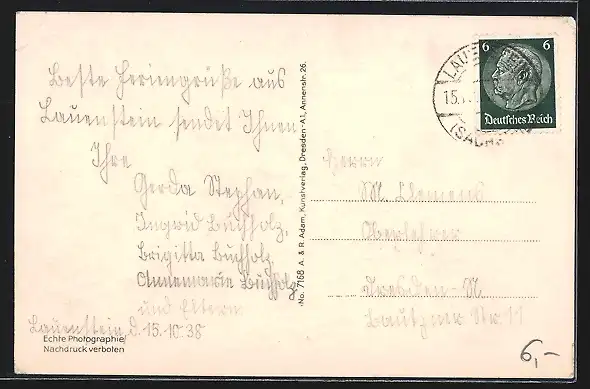 Beste Feriengrüße aus
Lauenstein sendet Ihnen
Ihre
Gerda Stephan,
Ingrid Buchholz,
Brigitta Buchholz,
Annemarie Buchholz
und Eltern
Lauenstein, d. 15.10.38
Echte Photographie
Nachdruck verboten
No. 7168 A. & R. Adam, Kunstverlag, Dresden-A1, Annenstr. 26.
6 6
Deutsches Reich
15.
(SACHSEN)
Herrn
M. Clemens
Oberlehrer
Dresden-N
Bautzner Str. 11
6,-